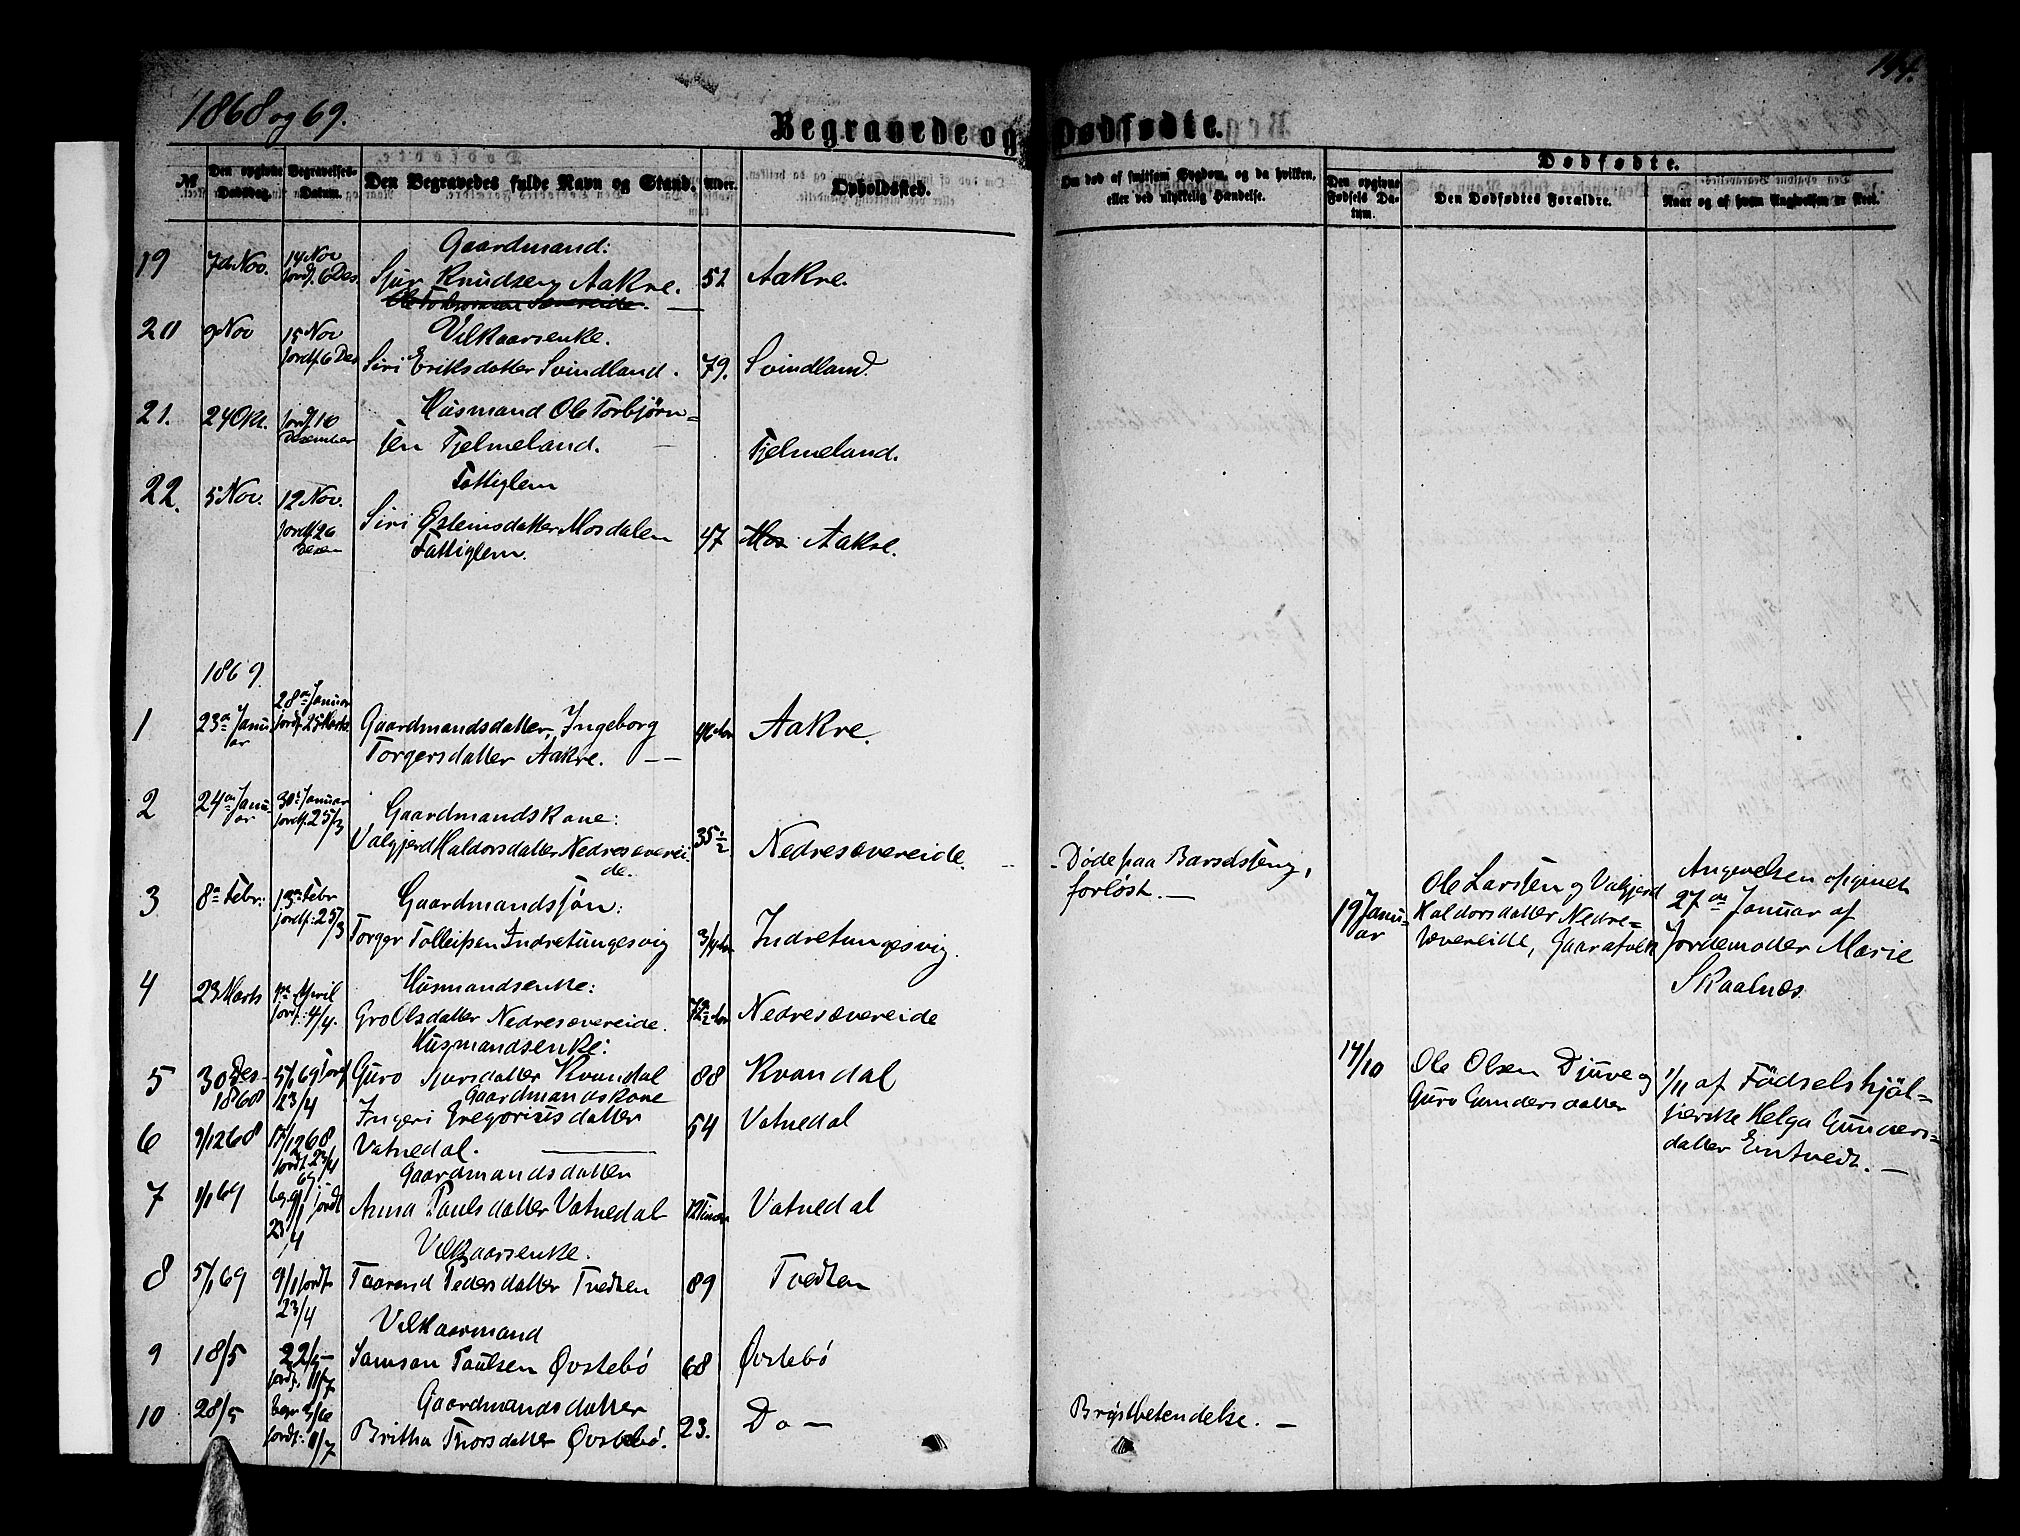 144.
1868 og 69.
Begravede og Dødfødte.
№
Den opgivne Dødsdag.
Begravelses-Datum.
Den Begravedes fulde Navn og Stand.
Alder.
Opholdssted.
Om død af smitsom Sygdom, og da hvilken, eller ved ulykkelig Hændelse.
Dødfødte.
Den opgivne Fødsels Datum.
Den Dødfødtes Forældre.
Naar og af hvem Angivelsen er skeet.
Gaardmand:
19 7de Nov. 14 Nov jordf. 6 Des. Sjur Knudsen Aakre. 52 Aakre.
Vilkaarsenke.
20 9 Nov 15 Nov jordf. 6 Des Siri Eriksdatter Svindland. 79. Svindland.
21. 24 Okt. jordf. 10 Desember Husmand Ole Torbjørn=
sen Fjelmeland. Fjelmeland.
Fattiglem
22. 5 Nov. 12 Nov. jordf. 26 Desem Siri Østeinsdatter Mosdalen 47 Mos Aakre.
Fattiglem.
1869.
1 23a Januar 28a Januar jordf. 25 Marts Gaardmandsdatter, Ingeborg Aakre.
Torgersdatter Aakre. —
2 24a Januar 30a Januar jordf. 25/3 Gaardmandskone:
Valgjerd Haldorsdatter Nedresævereide. 35 1/2 Nedresævereide. Døde paa Barselseng,
forløst. —
19 Januar Ole Larsen og Valgjerd
Haldorsdatter Nedre=
sævereide, Gaardfolk
Angivelsen opgivet
27de Januar af
Jordemoder Marie
Skaalnæs
3 8a Febr: 13a Febr jordf: 25/3 Gaardmandssøn:
Torger Tolleifsen Indretungesvig Indretungesvig.
4 23 Marts April jordf: 4/4. Husmandsenke:
Gro Olsdatter Nedresævereide. Nedresævereide
Husmandsenke:
5 30 Des. 1868 5/1 69 jordf 23/4 Guro Sjursdatter Kvandal 88 Kvandal
14/10 Ole Olsen Djuve og
Guro Gundersdatter
1/11 af Födselshjäl=
jerske Helga Gunners=
datter Eintvedt. —
Gaardmandskone
6 9/12 68 17/12 68, jordf. 23/4 69 Ingeri Gregoriusdatter 54 Vatnedal
Vatnedal.
Gaardmandsdatter
7 1/1 69 beg. 9/1 jordf 23/4 Anna Paulsdatter Vatnedal 12 Timer Vatnedal
Vilkaarsenke.
8 5/1 69 9/1 jordf. 23/4 Taarend Pedersdatter Tvedten 89 Tvedten
Vilkaarmand
9 18/5 22/5 — jordf. 11/7. Samson Paulsen Øvstebö 68 Øvstebö
Gaardmandsdatter
10 28/5 begr 3/6 jordf: 11/7 Britha Thorsdatter Øvstebö. 23. Do — Brÿstbetendelse. —